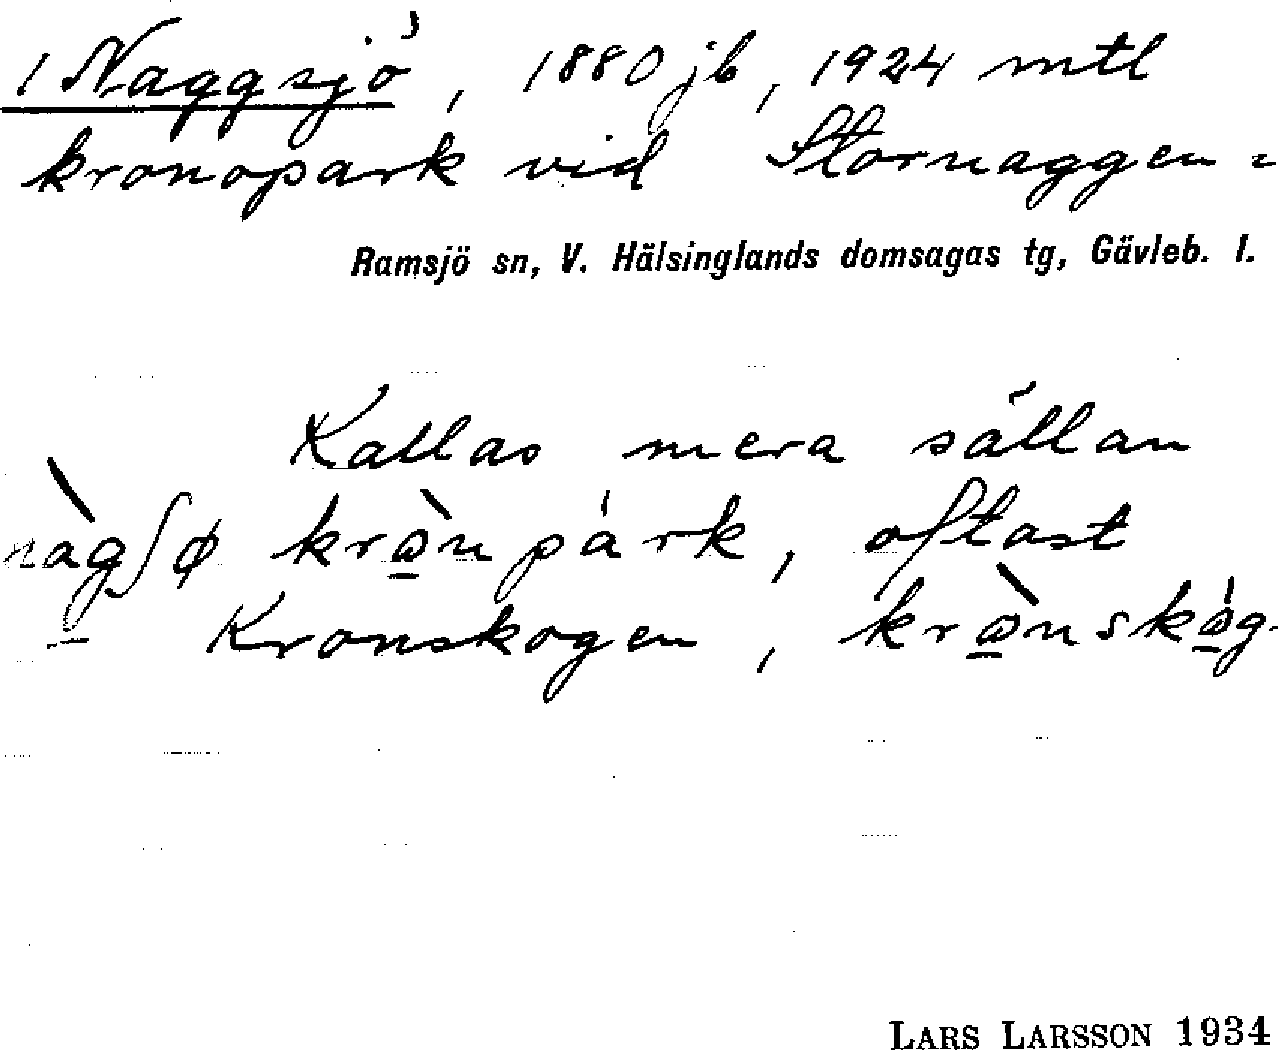 1 Naggsjö, 1880 jb, 1924 mtl
kronopark vid Stornaggen -
Ramsjö sn, V. Hälsinglands domsagas tg, Gävleb. l.
Kallas mera sällan
nàgʃø kròn párk, oftast
Kronskogen, krònskóg
LARS LARSSON 1934